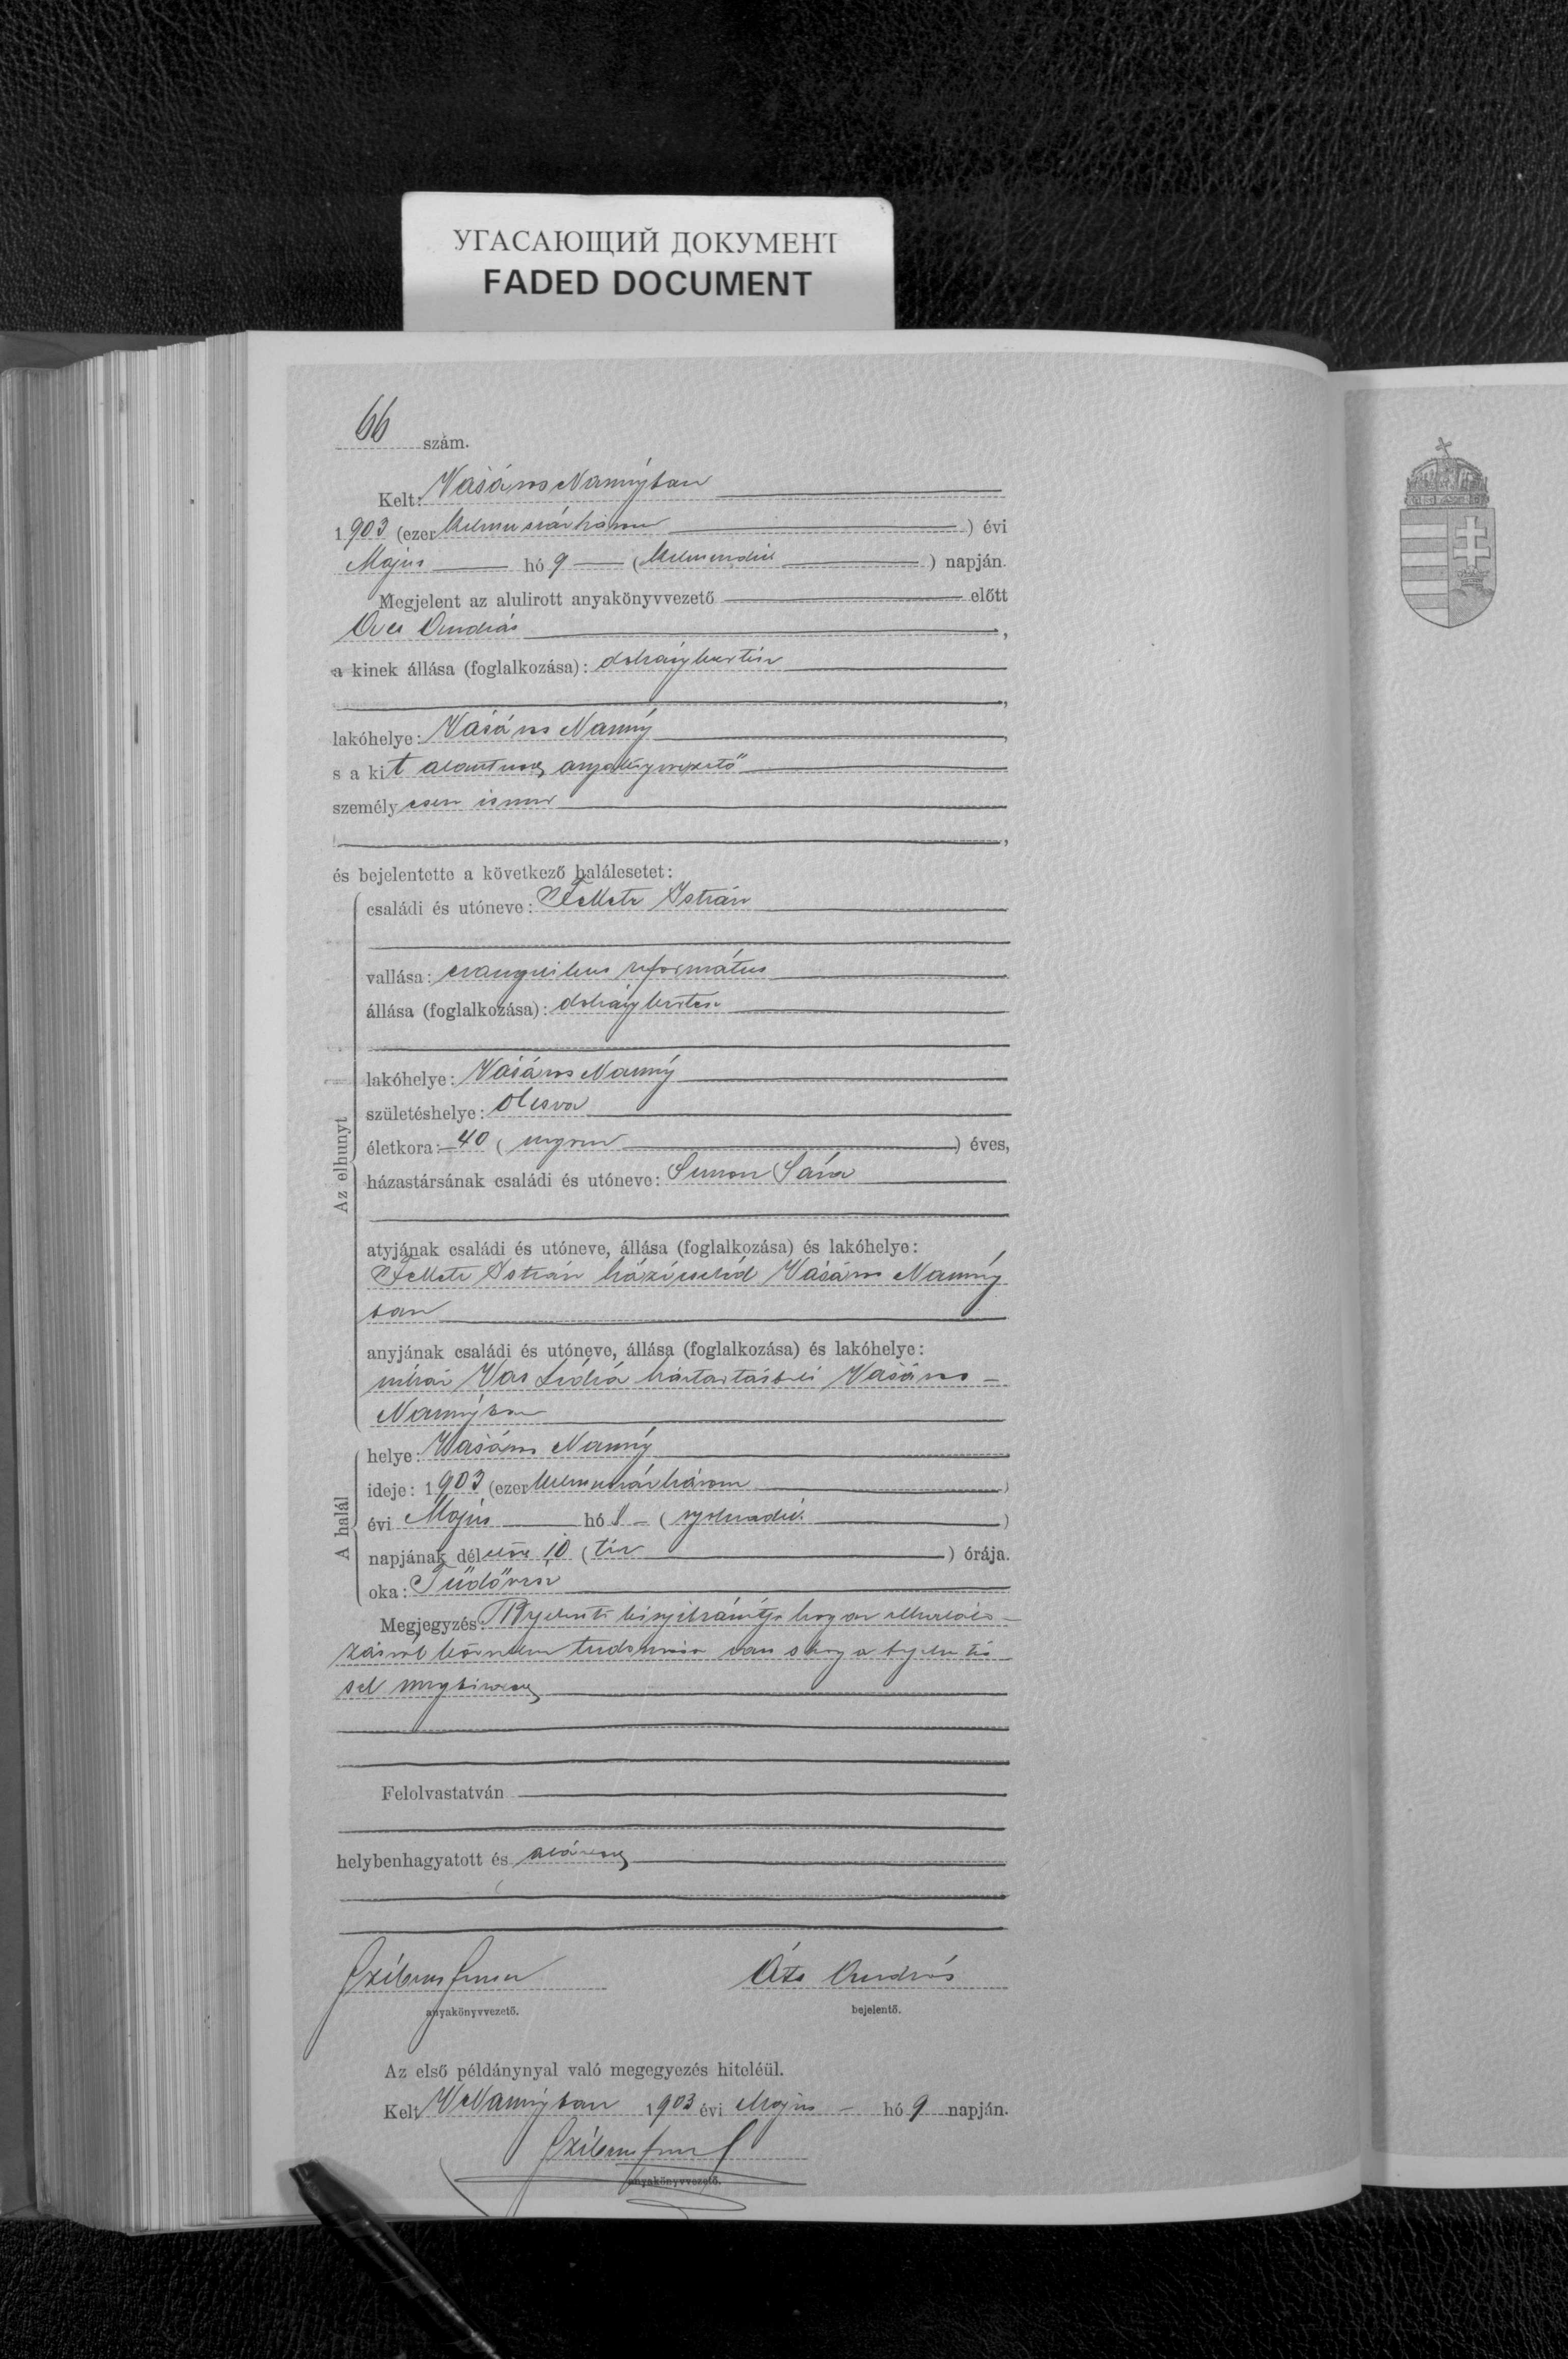 УГАСАЮЩИЙ ДОКУМЕНТ
FADED DOCUMENT
66 szám.
Kelt: Vásáros Naményban
1903 (ezer kilenczszázhárom) évi
Május hó 9 (kilenczedik) napján.
Megjelent az alulirott anyakönyvvezető előtt
András,
a kinek állása (foglalkozása): dohánykertész
lakóhelye: Vásáros Namény,
s a kit alantirott anyakönyvvezető
személyesen ismer
és bejelentette a következő halálesetet:
családi és utóneve: Fekete István
vallása: evangelikus református
állása (foglalkozása): dohánykertész
lakóhelye: Vásáros Namény
születéshelye: Olcsva
Az elhunyt
életkora: 40 (negyven) éves,
házastársának családi és utóneve: Simon Sára
atyjának családi és utóneve, állása (foglalkozása) és lakóhelye:
Fekete István házicseléd Vásáros Namény
ban
anyjának családi és utóneve, állása (foglalkozása) és lakóhelye:
néhai Vas Lídia háztartásbeli Vásáros-
Naményban
A halál
helye: Vásáros Namény
ideje: 1903 (ezer kilenczszázhárom)
évi Május hó 8 (nyolczadik)
napjának délelőtt 10 (tíz) órája.
oka: Tüdővész
Megjegyzés: Bejelentő kinyilvánítja hogy az elhalálo-
zásról közvetlen tudomása van s hogy a bejelentés
sel megbízott
Felolvastatván
helybenhagyatott és aláíratott
anyakönyvvezető.
András
bejelentő.
Az első példánynyal való megegyezés hiteléül.
Kelt VNaményban 1903 évi Május hó 9 napján.
anyakönyvvezető.